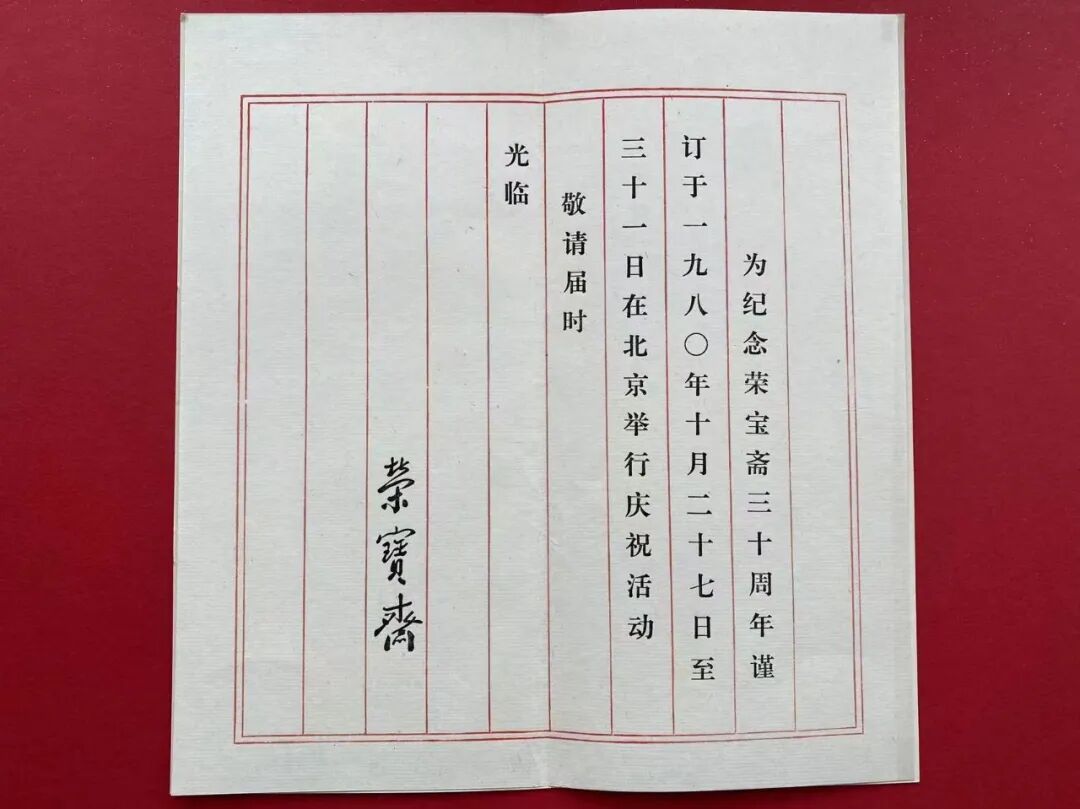 为纪念荣宝斋三十周年谨
订于一九八〇年十月二十七日至
三十一日在北京举行庆祝活动
敬请届时
光临
荣寶齋